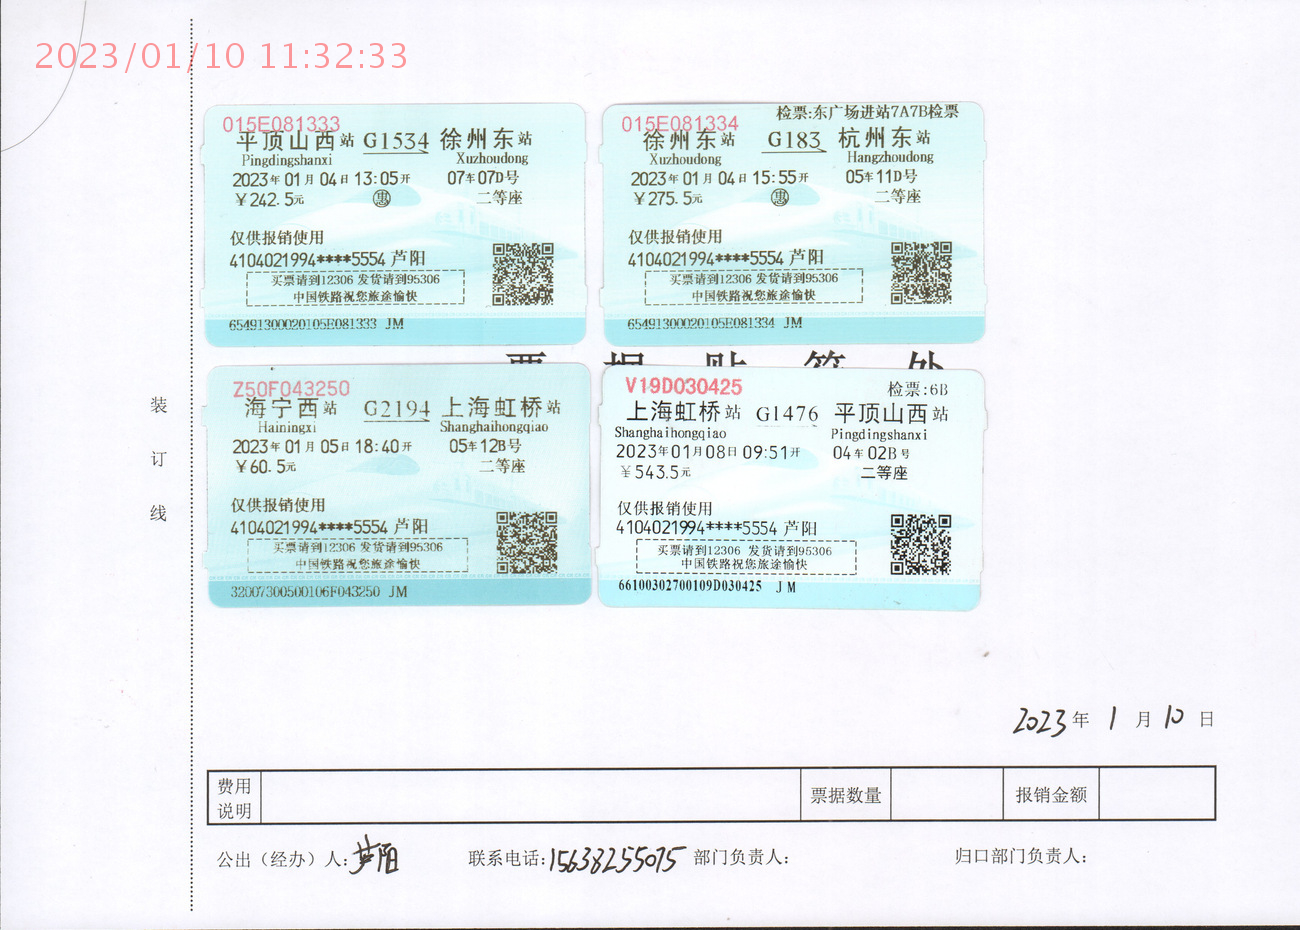 2023/01/10 11:32:33
015E081333
平顶山西站 G1534 徐州东站
Pingdingshanxi Xuzhoudong
2023年01月04日13:05开 07车07D号
￥242.5元 惠 二等座
仅供报销使用
4104021994****5554 芦阳
买票请到12306 发货请到95306
中国铁路祝您旅途愉快
65491300020105E081333 JM
检票:东广场进站7A7B检票
015E081334
徐州东站 G183 杭州东站
Xuzhoudong Hangzhoudong
2023年01月04日15:55开 05车11D号
￥275.5元 惠 二等座
仅供报销使用
4104021994****5554 芦阳
买票请到12306 发货请到95306
中国铁路祝您旅途愉快
65491300020105E081334 JM
Z50F043250
海宁西站 G2194 上海虹桥站
Hainingxi Shanghaihongqiao
2023年01月05日18:40开 05车12B号
￥60.5元 二等座
仅供报销使用
4104021994****5554 芦阳
买票请到12306 发货请到95306
中国铁路祝您旅途愉快
32007300500106F043250 JM
V19D030425 检票:6B
上海虹桥站 G1476 平顶山西站
Shanghaihongqiao Pingdingshanxi
2023年01月08日09:51开 04车02B号
￥543.5元 二等座
仅供报销使用
4104021994****5554 芦阳
买票请到12306 发货请到95306
中国铁路祝您旅途愉快
66100302700109D030425 JM
装
订
线
2023年1月10日
费用说明 票据数量 报销金额
公出（经办）人:芦阳 联系电话:15638255075 部门负责人: 归口部门负责人: